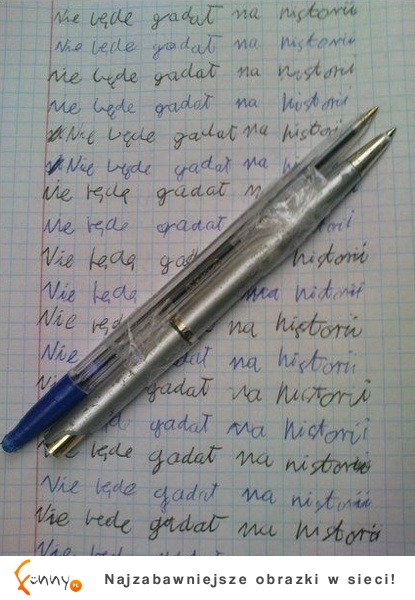 Nie będe gadał na historii
Nie będe gadał na historii
Nie będe gadał na historii
Nie będe gadał na historii
Nie będe gadał na historii
Nie będe gadał na historii
Nie będę gadał
Nie będe gadał historii
Nie będą gad historii
Nie będą na historii
Nie będę na historii
Nie na historii
Nie gadał na historii
gadał na historii
Nie będe gadał na historii
Nie będe gadał na historii
Nie bede gadał na historii
Nie będe gadał na historii
funny.pl Najzabawniejsze obrazki w sieci!